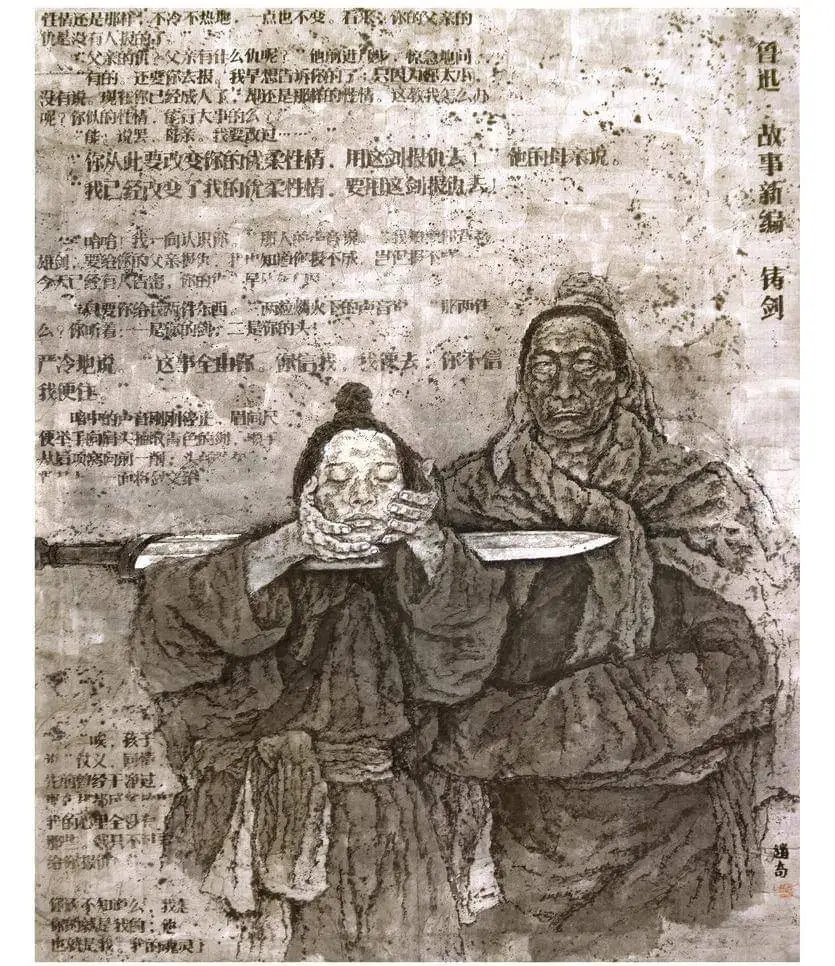 性情还是那样，不冷不热地，一点也不变。看来，你的父亲的
仇是没有人报的了。”
“父亲的仇？父亲有什么仇呢？”他前进几步，惊急地问
“有的。还要你去报。我早想告诉你的了；只因为你太小，
没有说。现在你已经成人了，却还是那样的性情。这教我怎么办
呢？你似的性情，能行大事的么？”
“能。说罢，母亲。我要改过……”
“你从此要改变你的优柔性情，用这剑报仇去！”他的母亲说。
“我已经改变了我的优柔性情，要用这剑报仇去！
“哈哈！我一向认识你。”那人的声音说。
雄剑，要给你的父亲报仇，我也知道你报不成。岂但报不
今天已经有人告密，你的
只要你给我两件东西。”两粒磷火下的声音说。“那两件
么？你听着：一是你的剑，二是你的头！”
严冷地说。“这事全由你。你信我，我便去；你不信
我便住。”
暗中的声音刚刚停止，眉间尺
便举手向肩头抽取青色的剑，顺手
从后项窝向前一削，头
“唉，孩子
仗义，同情
先前曾经干净过
我的心里全没有
给你报仇
你还不知道么，我是
你的就是我的；他
也就是我。我的魂灵上
鲁迅 故事新编 铸剑
赵奇